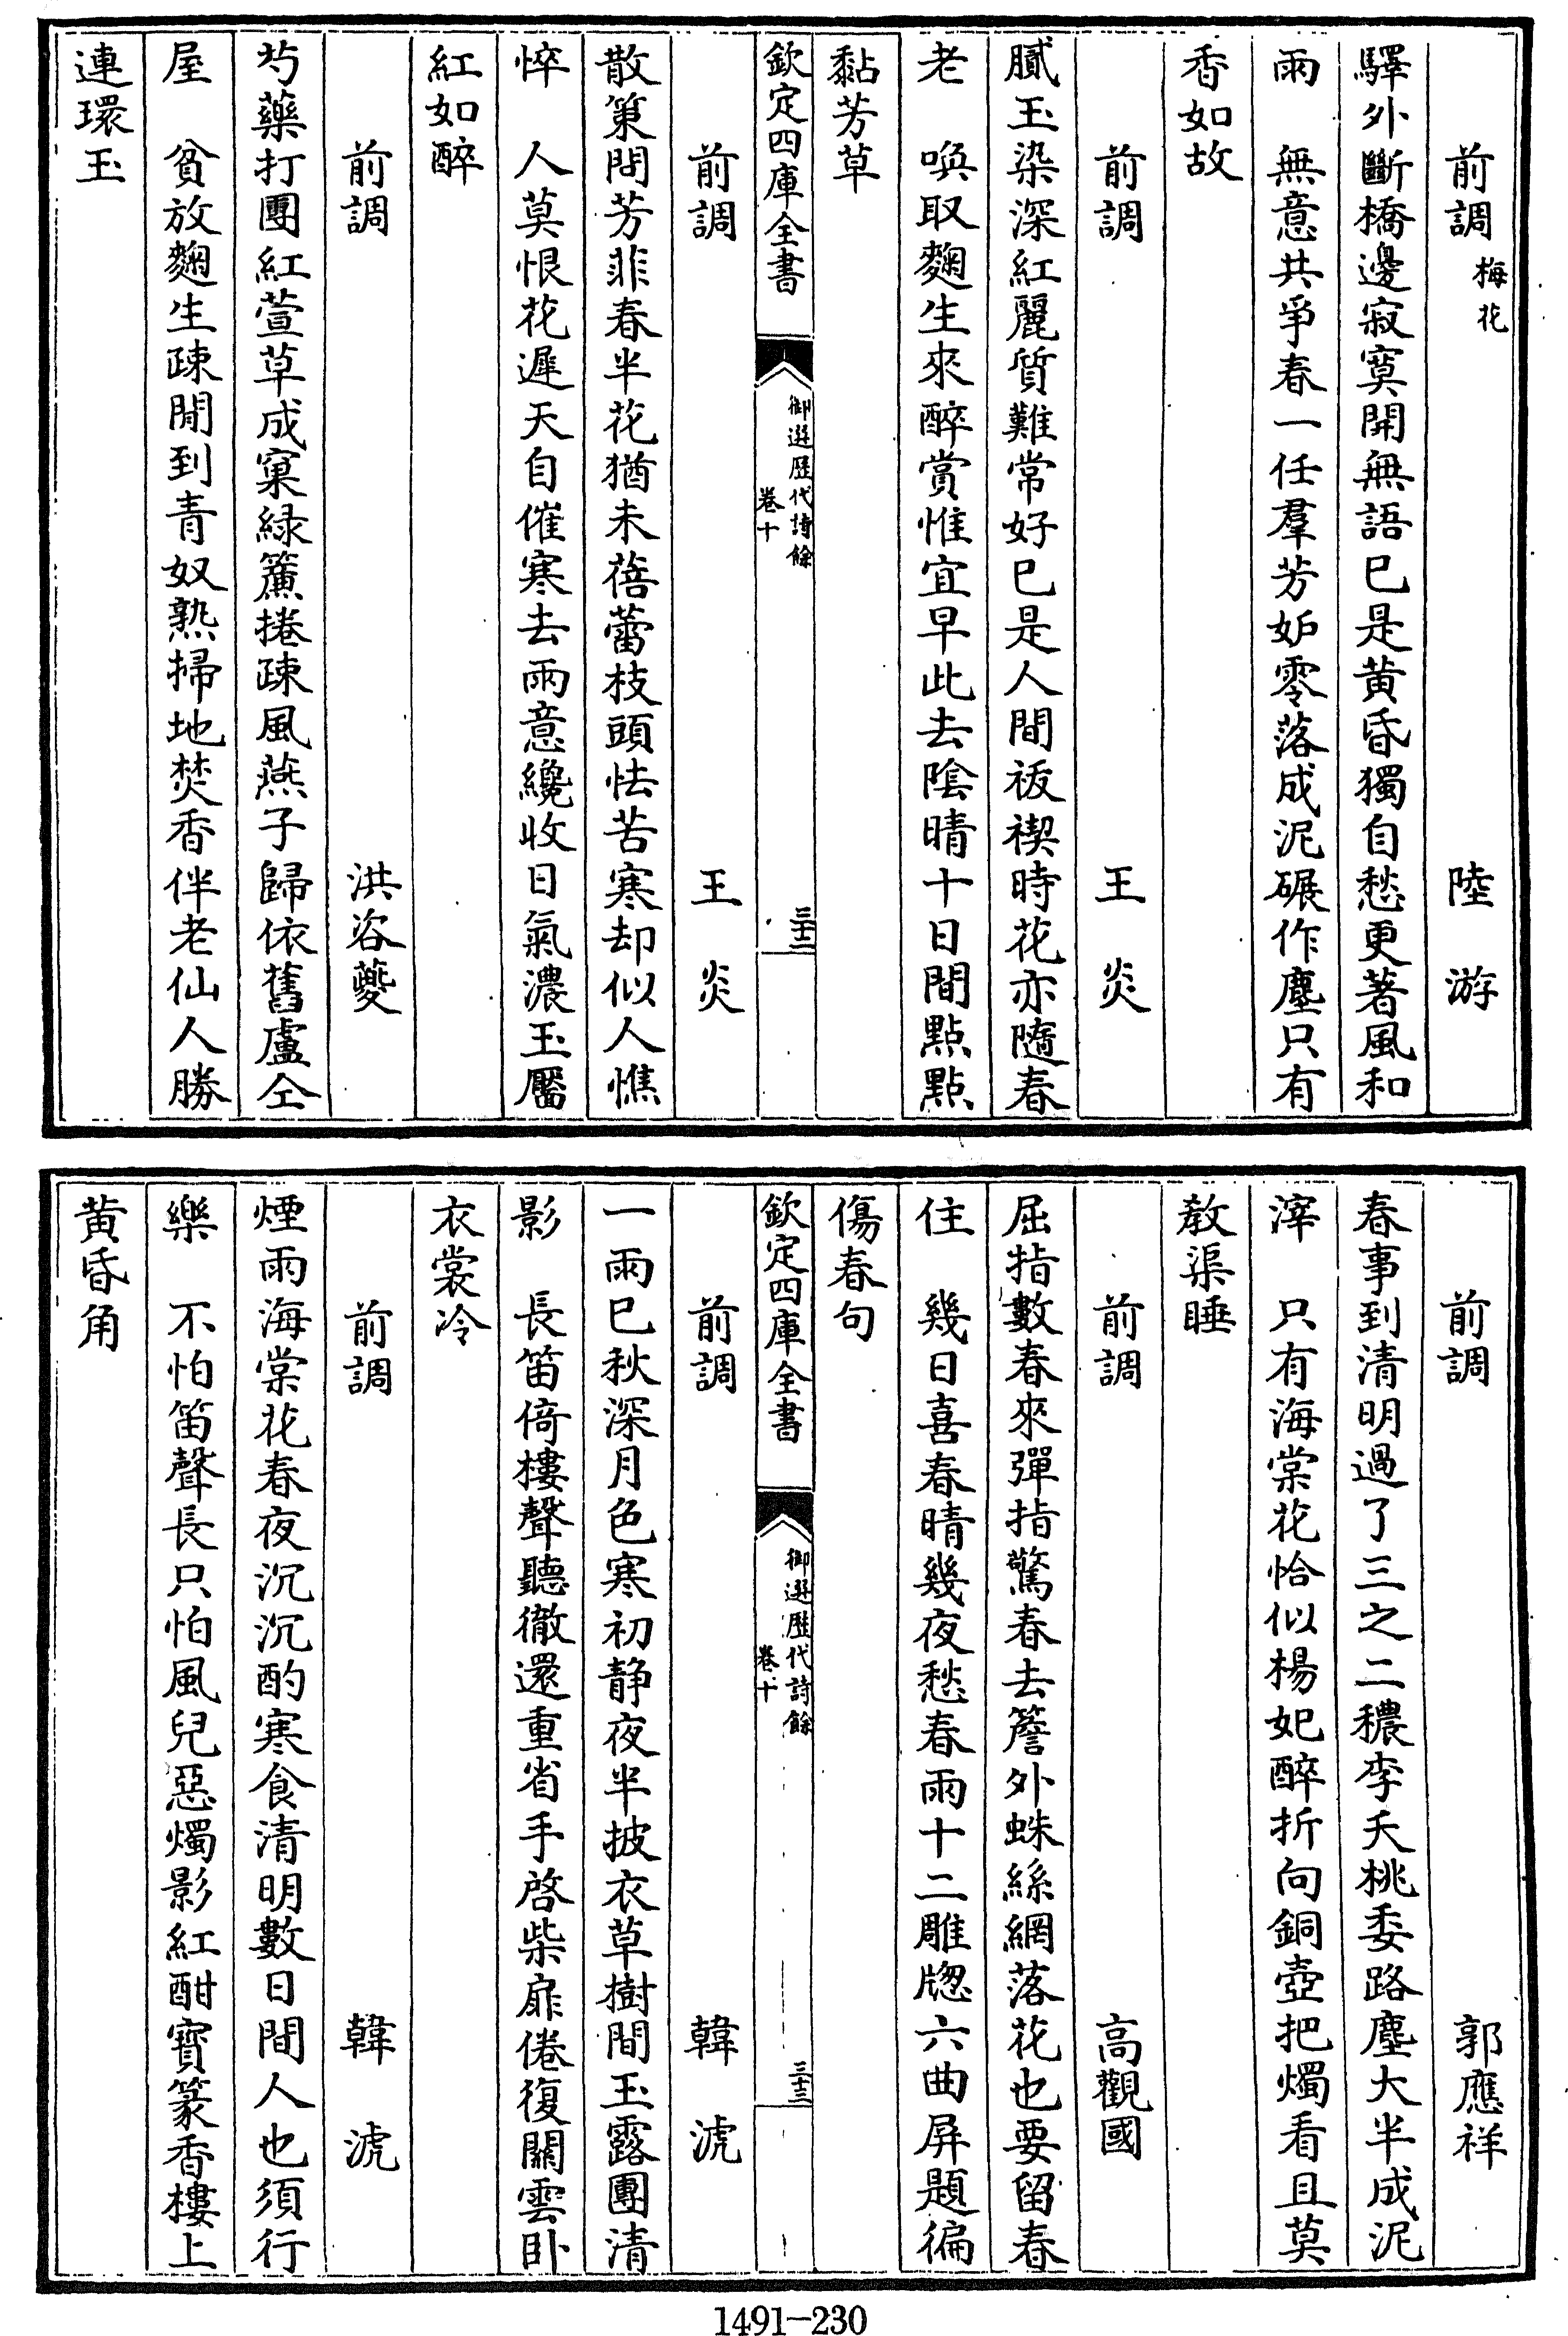 前調梅花　陸　游
驛外斷橋邊寂寞開無語已是黄昏獨自愁更著風和
雨　無意共爭春一任羣芳妒零落成泥碾作塵只有
香如故
前調　王　炎
膩玉染深紅麗質難常好已是人間祓禊時花亦隨春
老　喚取麴生來醉賞惟宜早此去陰晴十日間點點
黏芳草
欽定四庫全書　御選歷代詩餘卷十　三十二
前調　王　炎
散策問芳菲春半花猶未蓓蕾枝頭怯苦寒却似人憔
悴　人莫恨花遲天自催寒去雨意纔收日氣濃玉靨
紅如醉
前調　洪咨夔
芍藥打團紅萱草成窠綠簾捲疎風燕子歸依舊盧仝
屋　貧放麴生疎閒到青奴熟掃地焚香伴老仙人勝
連環玉
前調　郭應祥
春事到清明過了三之二穠李夭桃委路塵大半成泥
滓　只有海棠花恰似楊妃醉折向銅壺把燭看且莫
教渠睡
前調　高觀國
屈指數春來彈指驚春去簷外蛛絲網落花也要留春
住　幾日喜春晴幾夜愁春雨十二雕牎六曲屏題徧
傷春句
欽定四庫全書　御選歷代詩餘卷十　三十三
前調　韓　淲
一雨已秋深月色寒初静夜半披衣草樹間玉露團清
影　長笛倚樓聲聽徹還重省手啓柴扉倦復關雲卧
衣裳冷
前調　韓　淲
煙雨海棠花春夜沉沉酌寒食清明數日間人也須行
樂　不怕笛聲長只怕風兒惡燭影紅酣寶篆香樓上
黄昏角
1491-230